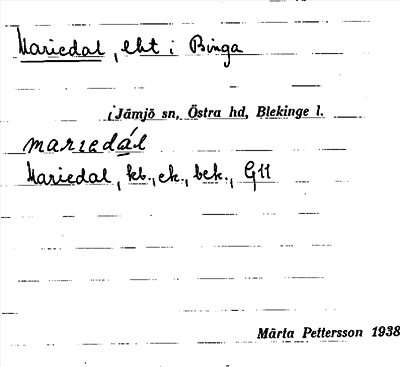 Mariedal, lht i Binga
i Jämjö sn, Östra hd, Blekinge l.
mariedál
Mariedal, kb., ek., bek., G11
Märta Pettersson 1938